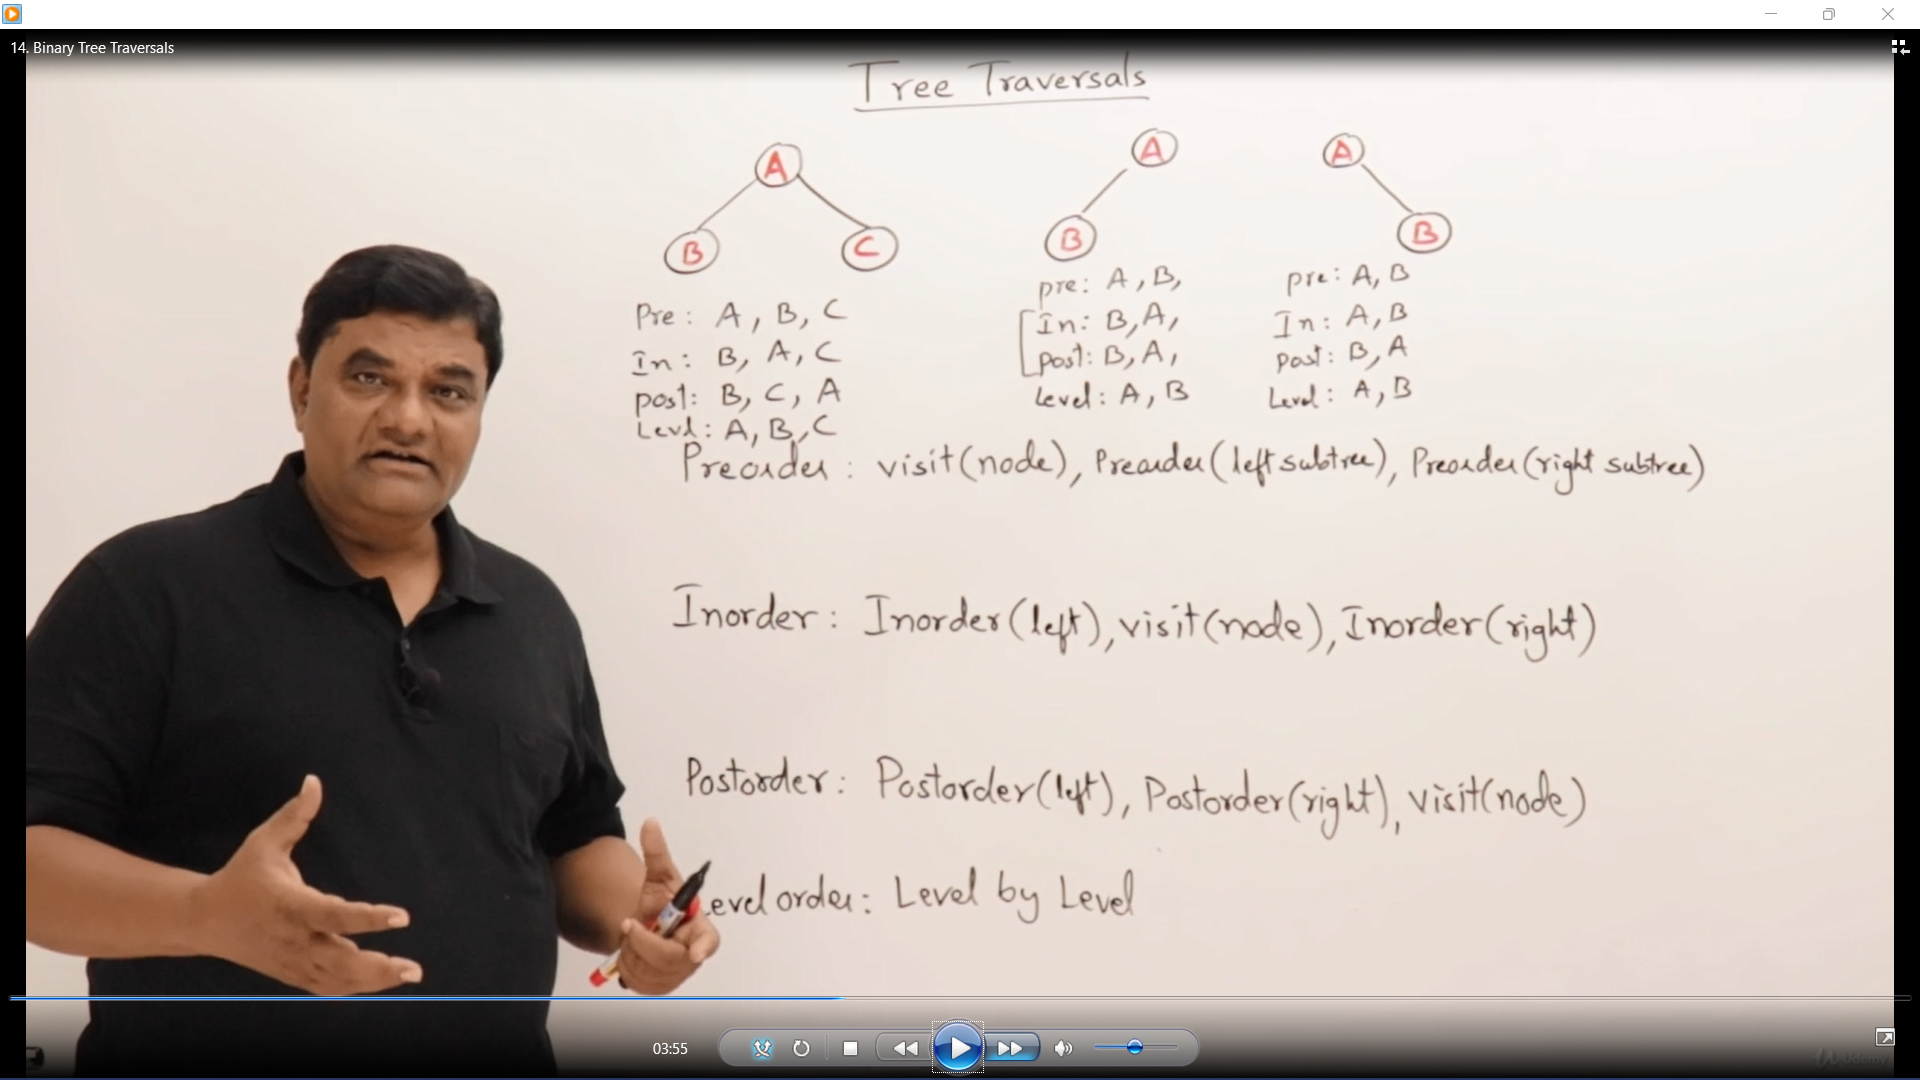 14. Binary Tree Traversals
Tree Traversals
A
B
C
Pre: A, B, C
In: B, A, C
post: B, C, A
Levl: A, B, C
A
B
pre: A, B,
In: B, A,
post: B, A,
Level: A, B
A
B
pre: A, B
In: A, B
post: B, A
Level: A, B
Preorder: visit(node), Preorder(left subtree), Preorder(right subtree)
Inorder: Inorder(left), visit(node), Inorder(right)
Postorder: Postorder(left), Postorder(right), visit(node)
Level order: Level by Level
03:55
Udemy